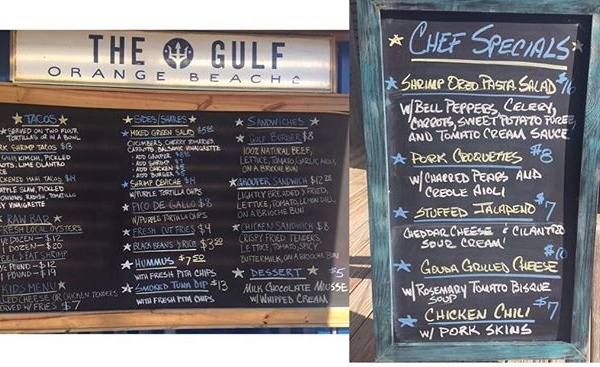 THE GULF
ORANGE BEACH
TACOS
SERVED ON TWO FLOUR
TORTILLAS OR IN A BOWL
SHRIMP TACOS $13
KIMCHI, PICKLED
LIME CILANTRO
MAHI TACOS $14
SLAW, PICKLED
ONIONS, RADISH, TOMATILLO
VINAIGRETTE
RAW BAR
FRESH LOCAL OYSTERS
DOZEN - $12
1 DOZEN - $20
PEEL & EAT SHRIMP
½ POUND - $12
1 POUND - $19
KID'S MENU
GRILLED CHEESE OR CHICKEN TENDERS
SERVED W/ FRIES $7
SIDES/SHARES
MIXED GREEN SALAD
CUCUMBERS, CHERRY TOMATOES,
CARROTS, BALSAMIC VINAIGRETTE
- ADD GROUPER
- ADD SHRIMP
- ADD CHICKEN
- ADD BURGER
SHRIMP CEVICHE
W/ PURPLE TORTILLA CHIPS
PICO DE GALLO $8
W/ PURPLE TORTILLA CHIPS
FRESH CUT FRIES $4
BLACK BEANS & RICE
HUMMUS
WITH FRESH PITA CHIPS
SMOKED TUNA DIP $13
WITH FRESH PITA CHIPS
SANDWICHES
GULF BURGER $8
100% NATURAL BEEF,
LETTUCE, TOMATO, GARLIC AIOLI
ON A BRIOCHE BUN
GROUPER SANDWICH
LIGHTLY BREADED & FRIED,
LETTUCE, TOMATO, LEMON AIOLI,
ON A BRIOCHE BUN
CHICKEN SANDWICH $8
CRISPY FRIED TENDERS,
LETTUCE, TOMATO, SPICY
BUTTERMILK, ON A BRIOCHE BUN
DESSERT $5
MILK CHOCOLATE MOUSSE
W/ WHIPPED CREAM
CHEF SPECIALS
SHRIMP ORZO PASTA SALAD $16
W/ BELL PEPPERS, CELERY,
CARROTS, SWEET POTATO PUREE
AND TOMATO CREAM SAUCE
PORK CROQUETTES $8
W/ CHARRED PEARS AND
CREOLE AIOLI
STUFFED JALAPENO $7
CHEDDAR CHEESE & CILANTRO
SOUR CREAM!
GOUDA GRILLED CHEESE $10
W/ ROSEMARY TOMATO BISQUE
SOUP
CHICKEN CHILI $7
W/ PORK SKINS